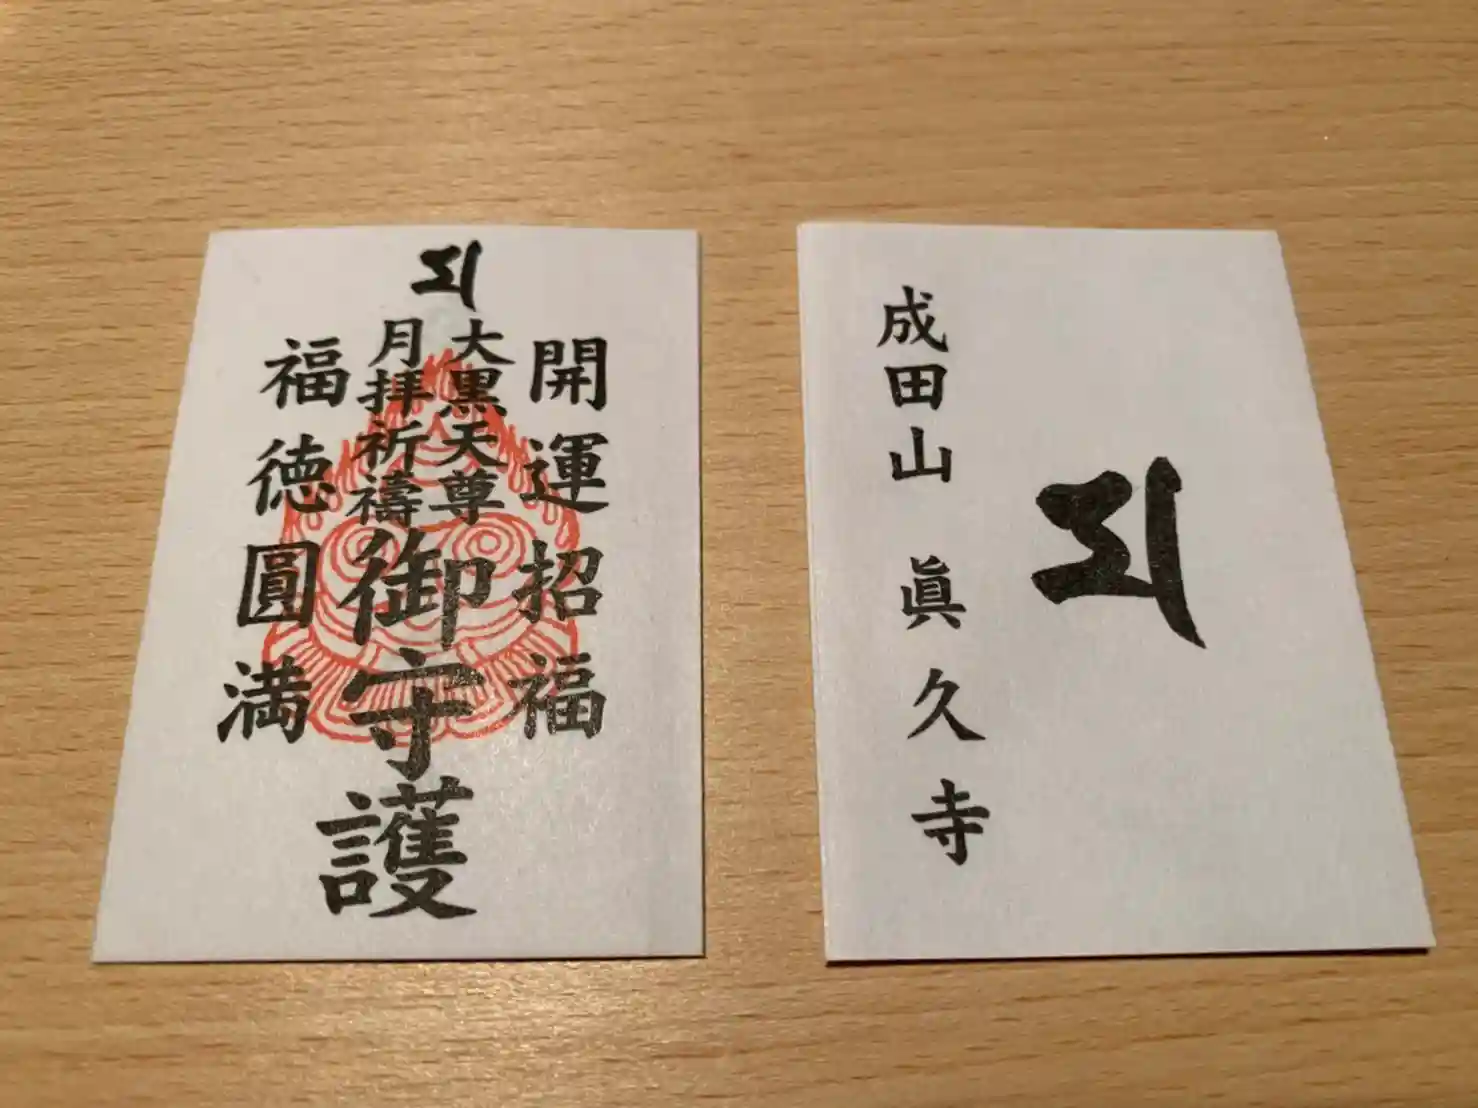 𑖦
開運招福
大黒天尊
月拝祈禱
御守護
福徳圓満
𑖦
成田山 眞久寺